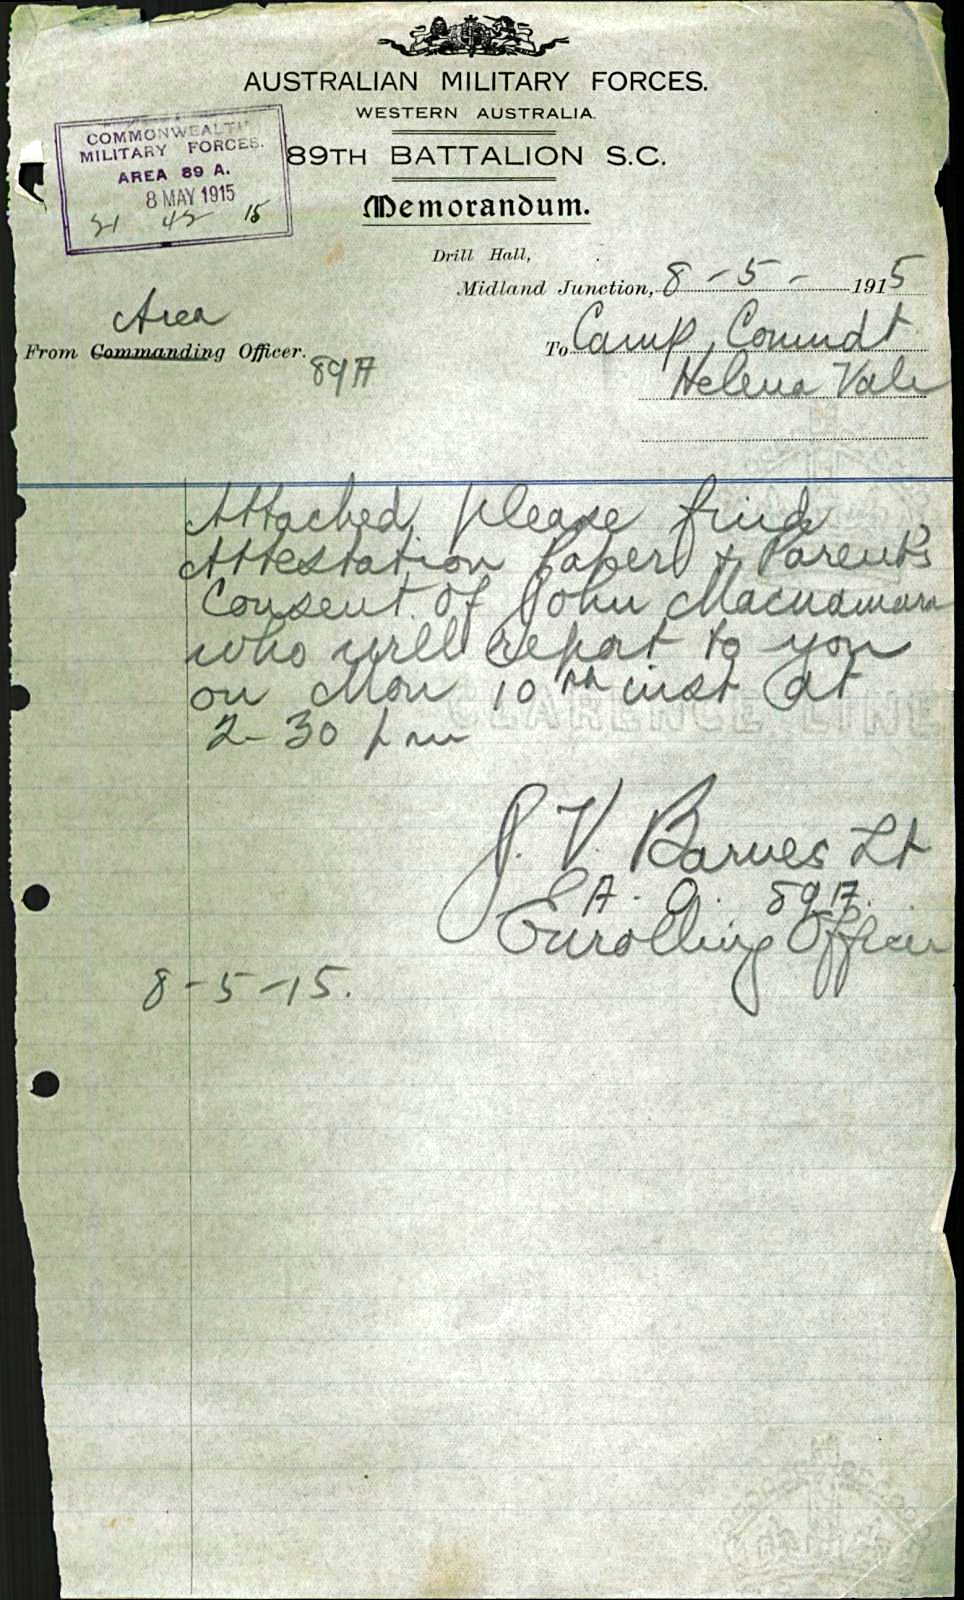 AUSTRALIAN MILITARY FORCES.
WESTERN AUSTRALIA.
89TH BATTALION S.C.
Memorandum.
COMMONWEALTH
MILITARY FORCES.
AREA 89 A.
8 MAY 1915
21 42 15
Drill Hall,
Midland Junction, 8-5- 1915
Area
From Commanding Officer.
89A
To Camp Commdt
Helena Vale
Attached please find
Attestation Paper & Parent's
Consent of John Macnamara
who will report to you
on Mon 10th inst at
2-30 pm
CLARENCE LINE
J. V. Barnes Lt
A. O. 89A.
Enrolling Officer
8-5-15.